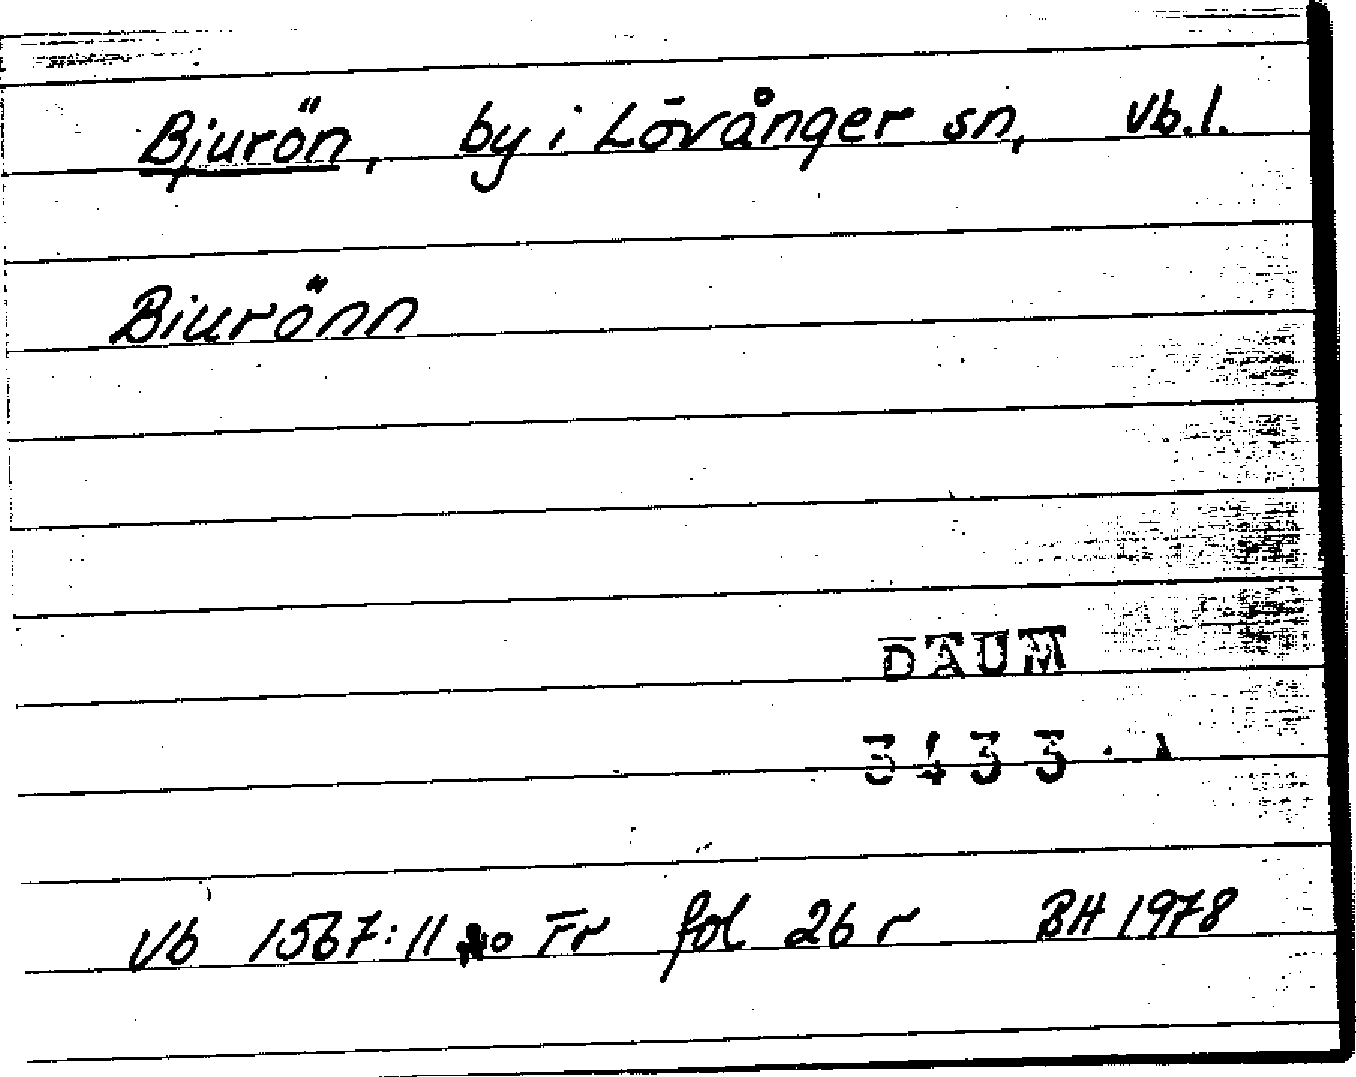 Bjurön, by i Lövånger sn, Vb.l.
Biurönn
DAUM
3433
Vb 1567:11 Fr fol 26 r BH 1978